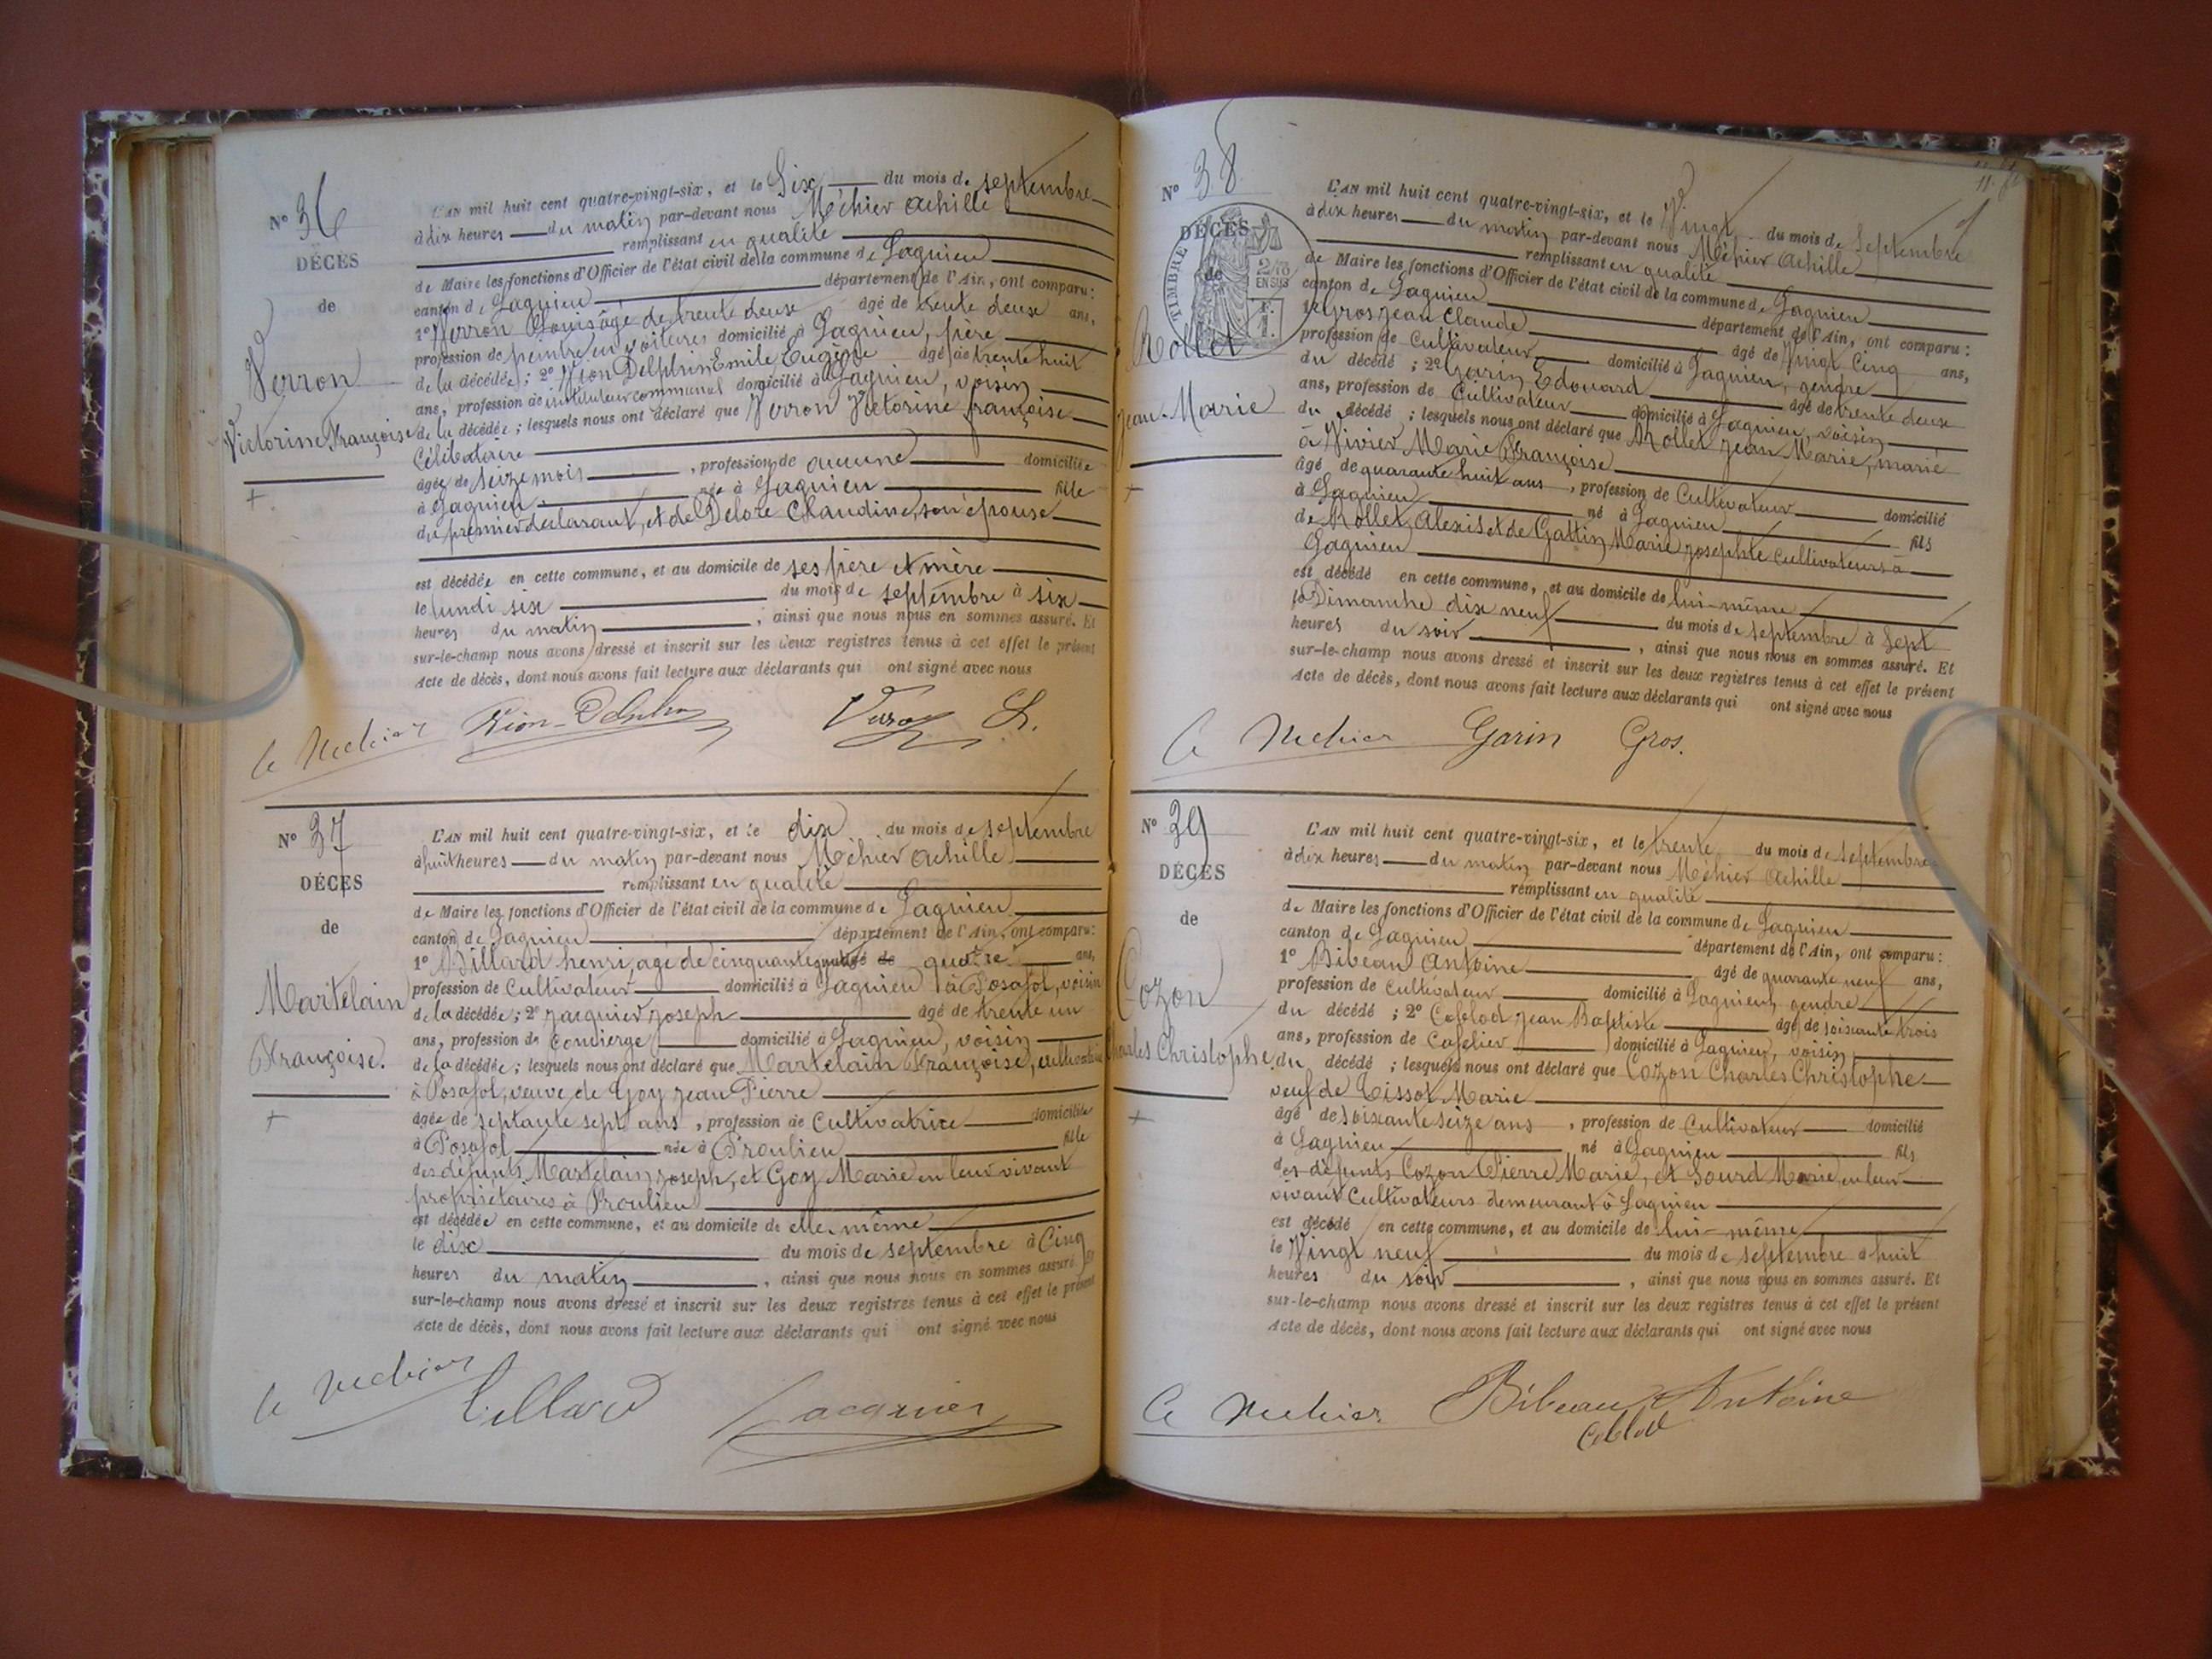 N° 36
DÉCES
de
Verron
Victorine Françoise
L'AN mil huit cent quatre-vingt-six, et le Six du mois de septembre
à dix heures du matin par-devant nous Méhier Achille
remplissant en qualité
de Maire les fonctions d'Officier de l'état civil de la commune de Lagnieu
canton de Lagnieu département de l'Ain, ont comparu :
1° Verron Louis âgé de trente deux âgé de trente deux ans,
profession de peintre en voitures domicilié à Lagnieu, père
de la décédée ; 2° Delphin Emile Eugène âgé de trente huit
ans, profession de instituteur communal domicilié à Lagnieu, voisin
de la décédée ; lesquels nous ont déclaré que Verron Victorine françoise
Célibataire
âgée de seize mois , profession de aucune domiciliée
à Lagnieu née à Lagnieu fille
du premier déclarant, et de Delore Claudine, son épouse
est décédée en cette commune, et au domicile de ses père et mère
le lundi six du mois de septembre à six
heures du matin ; ainsi que nous nous en sommes assuré. Et
sur-le-champ nous avons dressé et inscrit sur les deux registres tenus à cet effet le présent
Acte de décès, dont nous avons fait lecture aux déclarants qui ont signé avec nous
N° 37
DÉCES
de
Martelain
Françoise.
L'AN mil huit cent quatre-vingt-six, et le dix du mois de septembre
à huit heures du matin par-devant nous Méhier Achille
remplissant en qualité
de Maire les fonctions d'Officier de l'état civil de la commune de Lagnieu
canton de Lagnieu département de l'Ain, ont comparu :
1° Billard henri, âgé de cinquante quatre ans,
profession de Cultivateur domicilié à Lagnieu à Posafol, voisin
de la décédée ; 2° Jacquier Joseph âgé de trente un
ans, profession de Concierge domicilié à Lagnieu, voisin
de la décédée ; lesquels nous ont déclaré que Martelain Françoise, cultivatrice
à Posafol, veuve de Goy Jean Pierre
âgée de septante sept ans , profession de Cultivatrice domiciliée
à Posafol née à Proulieu fille
des défunts Martelain Joseph, et Goy Marie en leur vivant
propriétaires à Proulieu
est décédée en cette commune, et au domicile de elle même
le dix du mois de septembre à Cinq
heures du matin , ainsi que nous nous en sommes assuré. Et
sur-le-champ nous avons dressé et inscrit sur les deux registres tenus à cet effet le présent
Acte de décès, dont nous avons fait lecture aux déclarants qui ont signé avec nous
Billard Jacquier
N° 38
DÉCES
de
TIMBRE
2/10 EN SUS
Rollet
Jean-Marie
L'AN mil huit cent quatre-vingt-six, et le Vingt du mois de Septembre
à dix heures du matin par-devant nous Méhier Achille
remplissant en qualité
de Maire les fonctions d'Officier de l'état civil de la commune de Lagnieu
canton de Lagnieu département de l'Ain, ont comparu :
1° Gros Jean Claude âgé de Vingt Cinq ans,
profession de Cultivateur domicilié à Lagnieu, gendre
du décédé ; 2° Garin Edouard âgé de trente deux
ans, profession de Cultivateur domicilié à Lagnieu, voisin
du décédé ; lesquels nous ont déclaré que Rollet Jean Marie, marié
à Vivier Marie Françoise
âgé de quarante huit ans , profession de Cultivateur domicilié
à Lagnieu né à Lagnieu fils
de Rollet Alexis et de Gattin Marie Josephte Cultivateurs à
Lagnieu
est décédé en cette commune, et au domicile de lui-même
le Dimanche dix neuf du mois de septembre à Sept
heures du soir , ainsi que nous nous en sommes assuré. Et
sur-le-champ nous avons dressé et inscrit sur les deux registres tenus à cet effet le présent
Acte de décès, dont nous avons fait lecture aux déclarants qui ont signé avec nous
Garin Gros.
N° 39
DÉCES
de
Cozon
Charles Christophe
L'AN mil huit cent quatre-vingt-six, et le trente du mois de Septembre
à dix heures du matin par-devant nous Méhier Achille
remplissant en qualité
de Maire les fonctions d'Officier de l'état civil de la commune de Lagnieu
canton de Lagnieu département de l'Ain, ont comparu :
1° Bibeau Antoine âgé de quarante neuf ans,
profession de Cultivateur domicilié à Lagnieu, gendre
du décédé ; 2° Jean Baptiste âgé de soixante trois
ans, profession de Cafetier domicilié à Lagnieu, voisin
du décédé ; lesquels nous ont déclaré que Cozon Charles Christophe
veuf de Tissot Marie
âgé de soixante seize ans , profession de Cultivateur domicilié
à Lagnieu né à Lagnieu fils
des défunts Cozon Pierre Marie, et Sourd Marie, en leur
vivant Cultivateurs demeurant à Lagnieu
est décédé en cette commune, et au domicile de lui-même
le Vingt neuf du mois de septembre à huit
heures du soir , ainsi que nous nous en sommes assuré. Et
sur-le-champ nous avons dressé et inscrit sur les deux registres tenus à cet effet le présent
Acte de décès, dont nous avons fait lecture aux déclarants qui ont signé avec nous
Bibeau Antoine